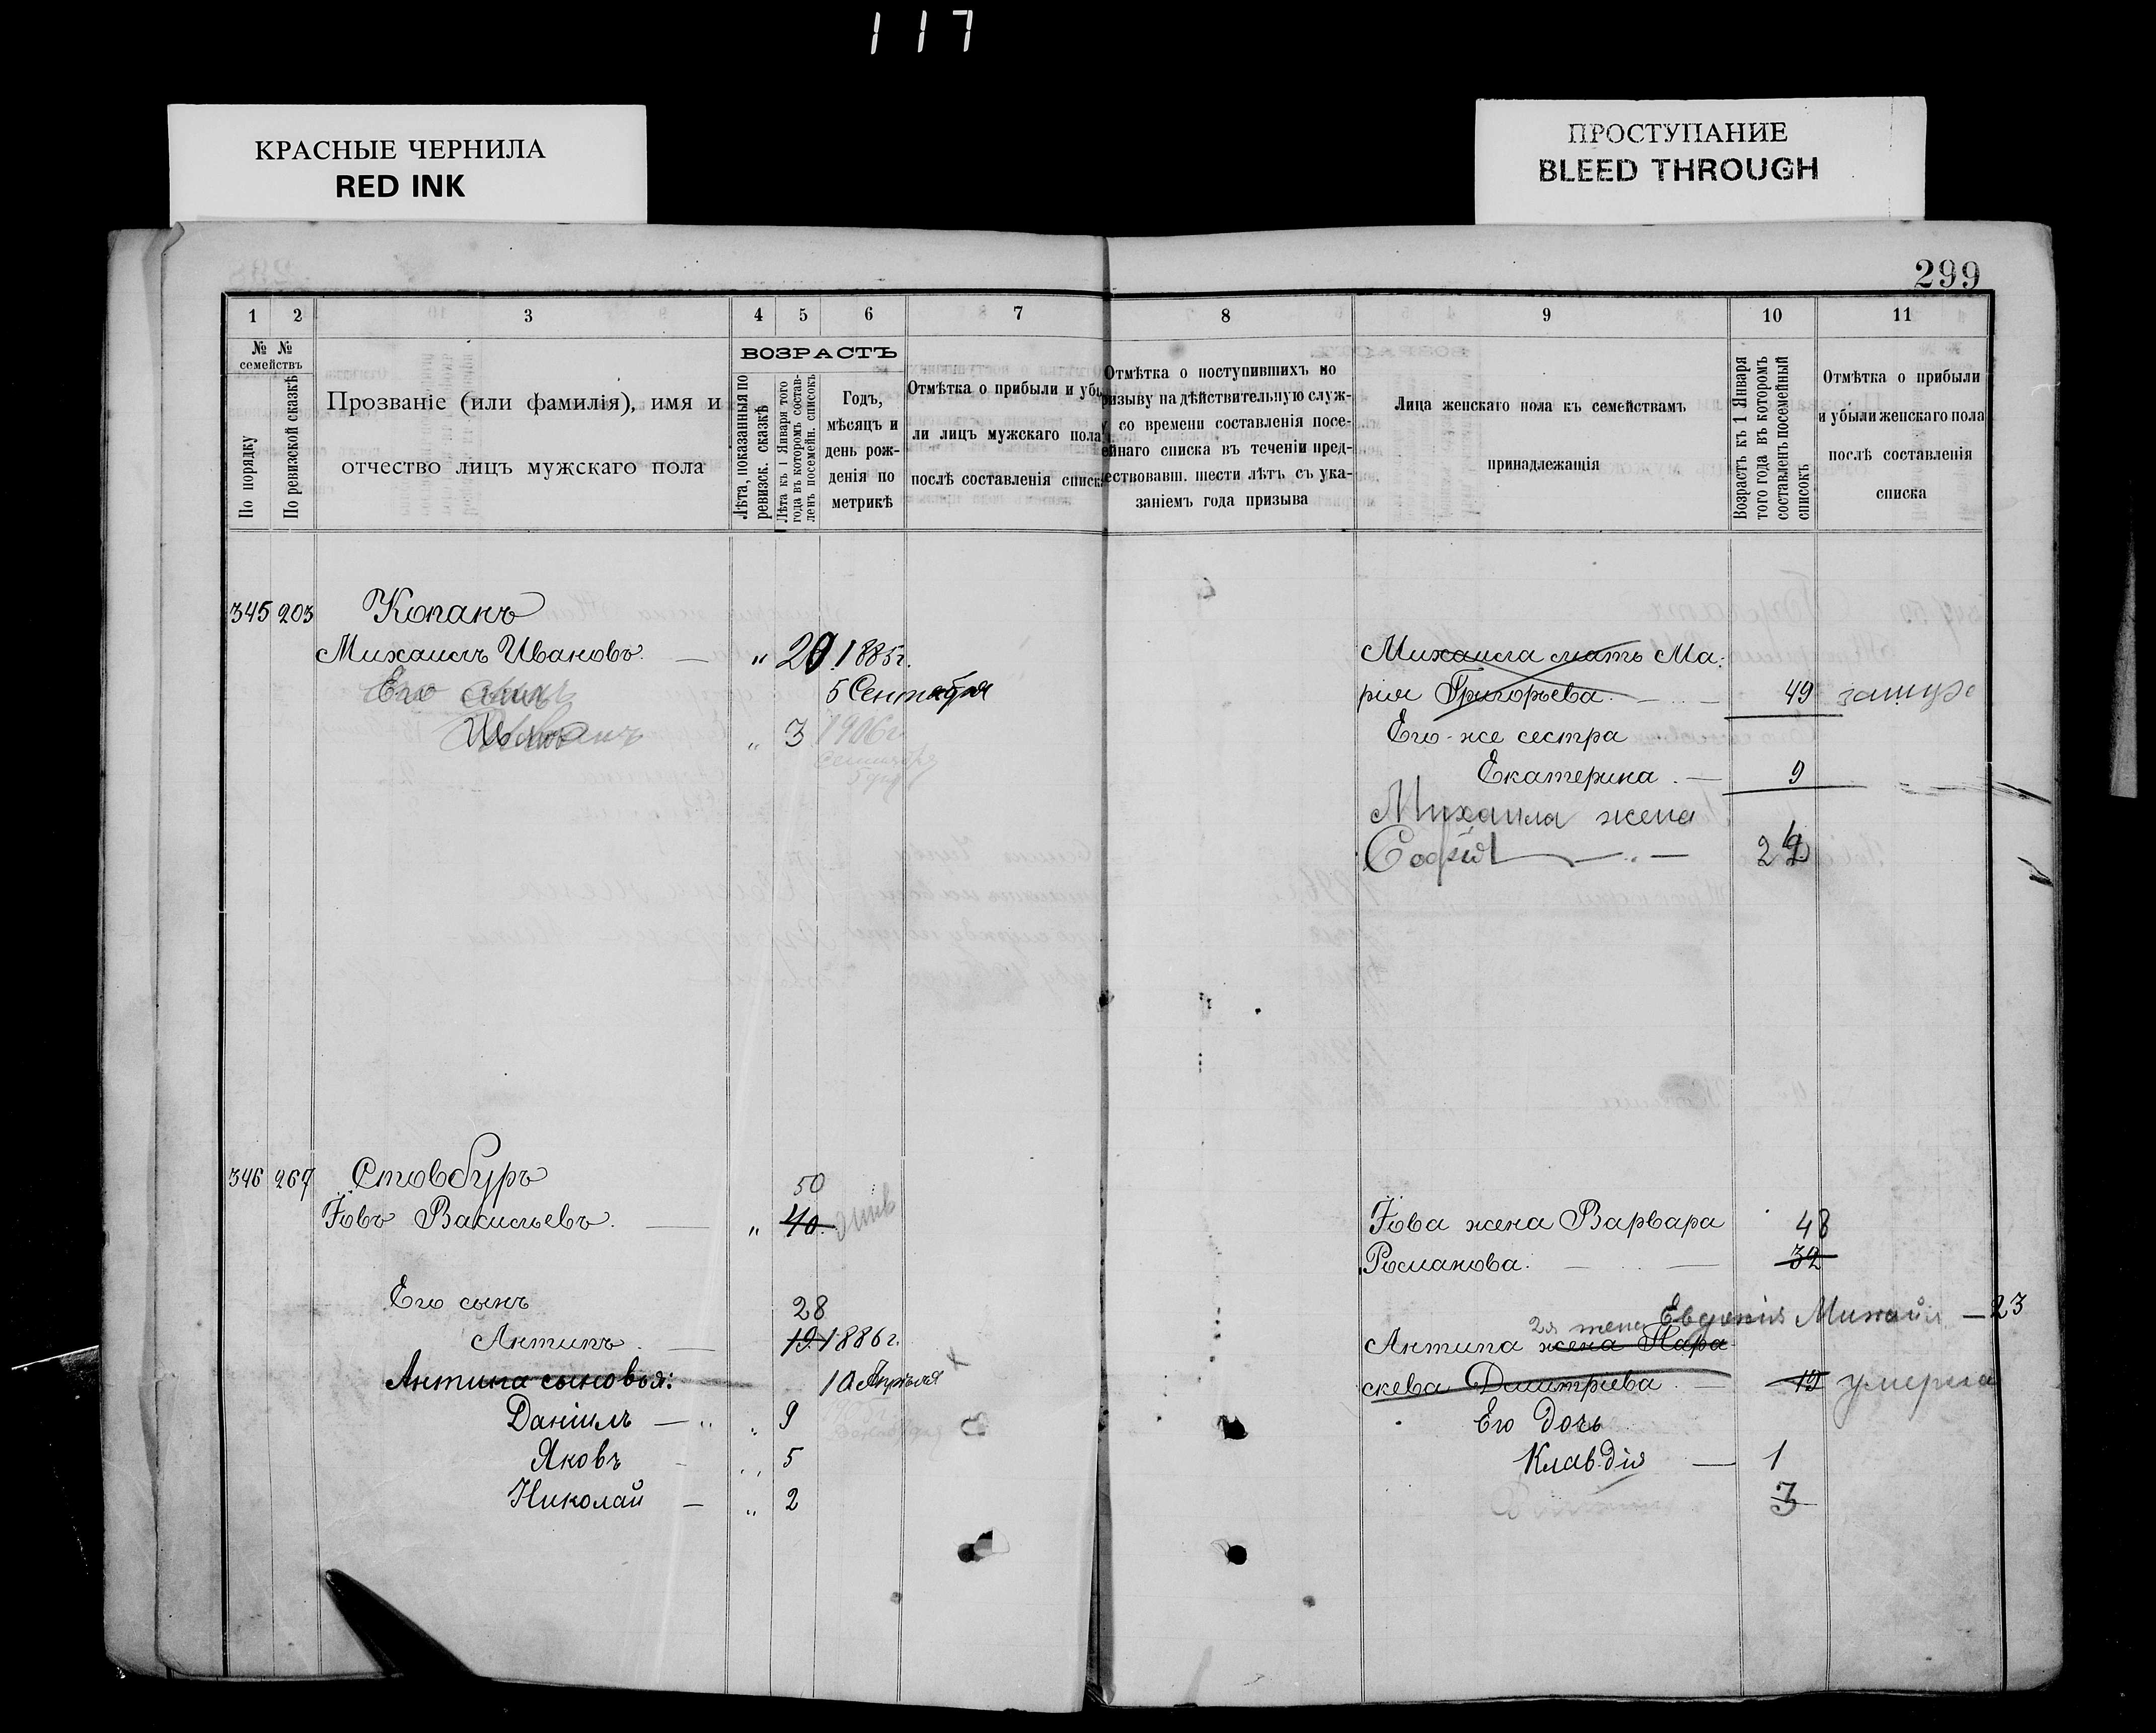 117
КРАСНЫЕ ЧЕРНИЛА
RED INK
ПРОСТУПАНИЕ
BLEED THROUGH
299
1 2 3 4 5 6 7 8 9 10 11
№ № семействъ
По порядку
По ревизской сказкѣ
Прозваніе (или фамилія), имя и
отчество лицъ мужскаго пола
ВОЗРАСТЪ
Лѣта, показанныя по
ревизск. сказкѣ
Лѣта къ 1 Января того
года въ которомъ состав-
ленъ посемейн. списокъ
Годъ,
мѣсяцъ и
день рож-
денія по
метрикѣ
Отмѣтка о прибыли и убы
ли лицъ мужскаго пола
послѣ составленія списк
Отмѣтка о поступившихъ по
ризыву на дѣйствительную служ-
у со времени составленія посе-
ейнаго списка въ теченіи пред-
ествовавш. шести лѣтъ съ ука-
заніемъ года призыва
Лица женскаго пола къ семействамъ
принадлежащія
Возрастъ къ 1 Января
того года въ которомъ
составленъ посемейный
списокъ
Отмѣтка о прибыли
и убыли женскаго пола
послѣ составленія
списка
345 203 Копанъ
Михаилъ Ивановъ. — " 20 1885г.
5 Сентября
Его сынъ
Иванъ " 3 1906г.
Сентября
5 дня
Михаила мать Ма-
рія Григорьева. — 49 замуж
Его-же сестра
Екатерина. — 9
Михаила жена
Софія — 24
346 267 Стовбуръ
50
Іовъ Васильевъ. — " 40.
Его сынъ
28
Антипъ. — 19. 1886г.
10 Апрѣля
Антипа сыновья:
Даніилъ — " 9
Яковъ - " 5
Николай — " 2
Іова жена Варвара 48
Романова. — 32
2я жена Евдокія Михайл — 23
Антипа жена Пара-
скева Дмитріева. — 19 умерла
Его дочь
Клавдія — 1
3